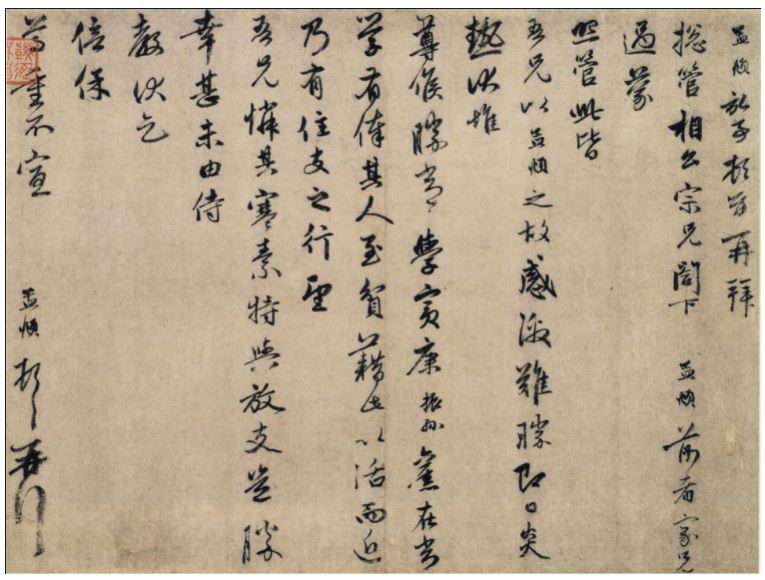 孟頫放子頓首再拜
總管相公宗兄閤下 孟頫前者家兄
過蒙
照管此皆
吾兄以孟頫之故感激難勝即日炎
熱伏惟
尊候勝常 學賓康振孫舊在常
学有俸其人至貧藉此以活而近
乃有住支之行望
吾兄憐其寒素特與放支豈勝
幸甚未由侍
教伏乞
倍保
尊重不宣 孟頫頓首再拜